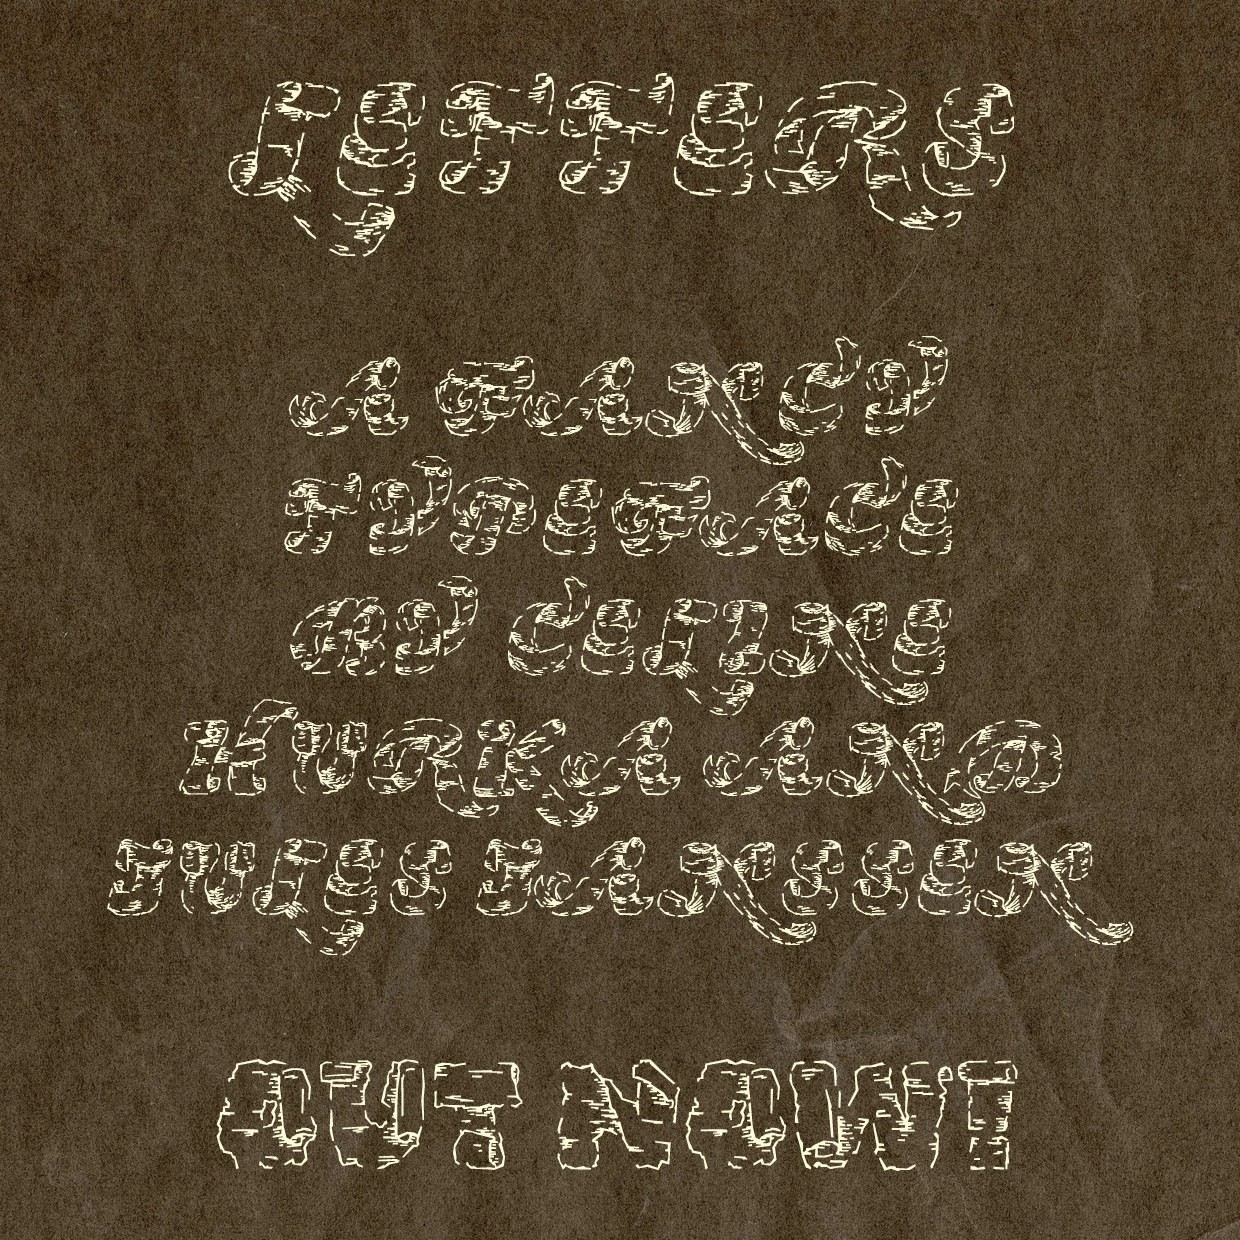 LETTERS
A FANCY
TYPEFACE
BY CELINE
HURKA AND
JULES JANSSEN
OUT NOW!